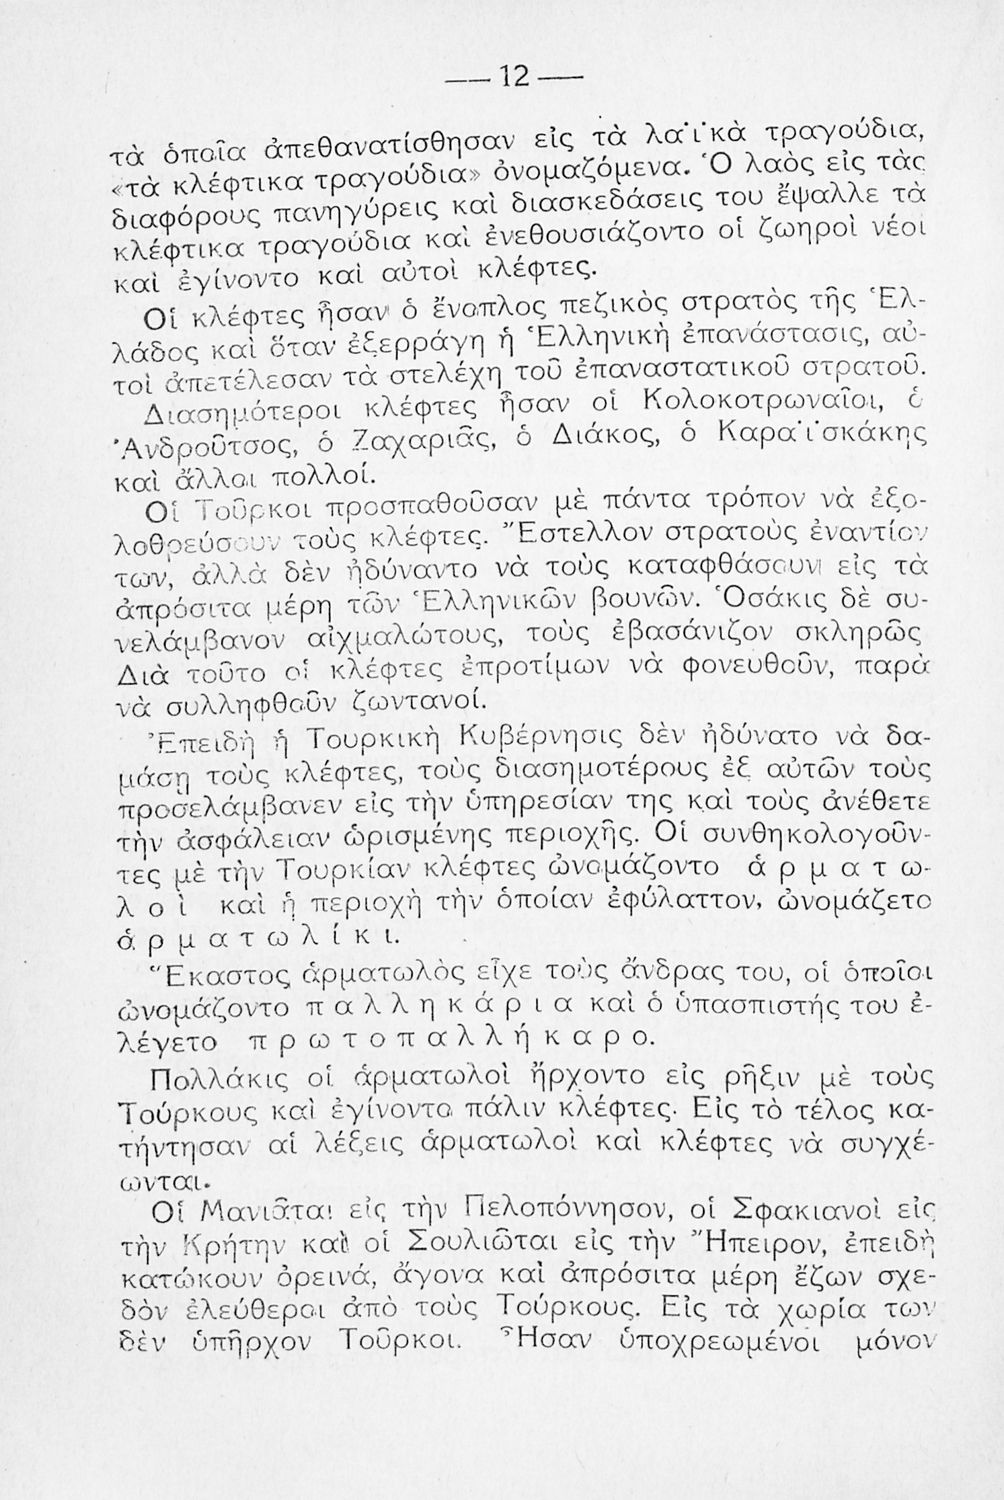 — 12 —
τὰ ὁποῖα ἀπεθανατίσθησαν εἰς τὰ λαϊκὰ τραγούδια,
«τὰ κλέφτικα τραγούδια» ὀνομαζόμενα. Ὁ λαὸς εἰς τὰς
διαφόρους πανηγύρεις καὶ διασκεδάσεις του ἔψαλλε τὰ
κλέφτικα τραγούδια καὶ ἐνεθουσιάζοντο οἱ ζωηροὶ νέοι
καὶ ἐγίνοντο καὶ αὐτοὶ κλέφτες.
Οἱ κλέφτες ἦσαν ὁ ἔνοπλος πεζικὸς στρατὸς τῆς Ἑλ-
λάδος καὶ ὅταν ἐξερράγη ἡ Ἑλληνικὴ ἐπανάστασις, αὐ-
τοὶ ἀπετέλεσαν τὰ στελέχη τοῦ ἐπαναστατικοῦ στρατοῦ.
Διασημότεροι κλέφτες ἦσαν οἱ Κολοκοτρωναῖοι, ὁ
Ἀνδροῦτσος, ὁ Ζαχαριᾶς, ὁ Διάκος, ὁ Καραϊσκάκης
καὶ ἄλλοι πολλοί.
Οἱ Τοῦρκοι προσπαθοῦσαν μὲ πάντα τρόπον νὰ ἐξο-
λοθρεύσουν τοὺς κλέφτες. Ἔστελλον στρατοὺς ἐναντίον
των, ἀλλὰ δὲν ἠδύναντο νὰ τοὺς καταφθάσουν εἰς τὰ
ἀπρόσιτα μέρη τῶν Ἑλληνικῶν βουνῶν. Ὁσάκις δὲ συ-
νελάμβανον αἰχμαλώτους, τοὺς ἐβασάνιζον σκληρῶς
Διὰ τοῦτο οἱ κλέφτες ἐπροτίμων νὰ φονευθοῦν, παρὰ
νὰ συλληφθοῦν ζωντανοί.
Ἐπειδὴ ἡ Τουρκικὴ Κυβέρνησις δὲν ἠδύνατο νὰ δα-
μάσῃ τοὺς κλέφτες, τοὺς διασημοτέρους ἐξ αὐτῶν τοὺς
προσελάμβανεν εἰς τὴν ὑπηρεσίαν της καὶ τοὺς ἀνέθετε
τὴν ἀσφάλειαν ὡρισμένης περιοχῆς. Οἱ συνθηκολογοῦν-
τες μὲ τὴν Τουρκίαν κλέφτες ὠνομάζοντο ἁ ρ μ α τ ω-
λ ο ὶ καὶ ἡ περιοχὴ τὴν ὁποίαν ἐφύλαττον, ὠνομάζετο
ἁ ρ μ α τ ω λ ί κ ι.
Ἕκαστος ἁρματωλὸς εἶχε τοὺς ἄνδρας του, οἱ ὁποῖοι
ὠνομάζοντο π α λ λ η κ ά ρ ι α καὶ ὁ ὑπασπιστής του ἐ-
λέγετο π ρ ω τ ο π α λ λ ή κ α ρ ο.
Πολλάκις οἱ ἁρματωλοὶ ἤρχοντο εἰς ρῆξιν μὲ τοὺς
Τούρκους καὶ ἐγίνοντο πάλιν κλέφτες. Εἰς τὸ τέλος κα-
τήντησαν αἱ λέξεις ἁρματωλοὶ καὶ κλέφτες νὰ συγχέ-
ωνται.
Οἱ Μανιᾶται εἰς τὴν Πελοπόννησον, οἱ Σφακιανοὶ εἰς
τὴν Κρήτην καὶ οἱ Σουλιῶται εἰς τὴν Ἤπειρον, ἐπειδὴ
κατώκουν ὀρεινά, ἄγονα καὶ ἀπρόσιτα μέρη ἔζων σχε-
δὸν ἐλεύθεροι ἀπὸ τοὺς Τούρκους. Εἰς τὰ χωρία των
δὲν ὑπῆρχον Τοῦρκοι. Ἦσαν ὑποχρεωμένοι μόνον